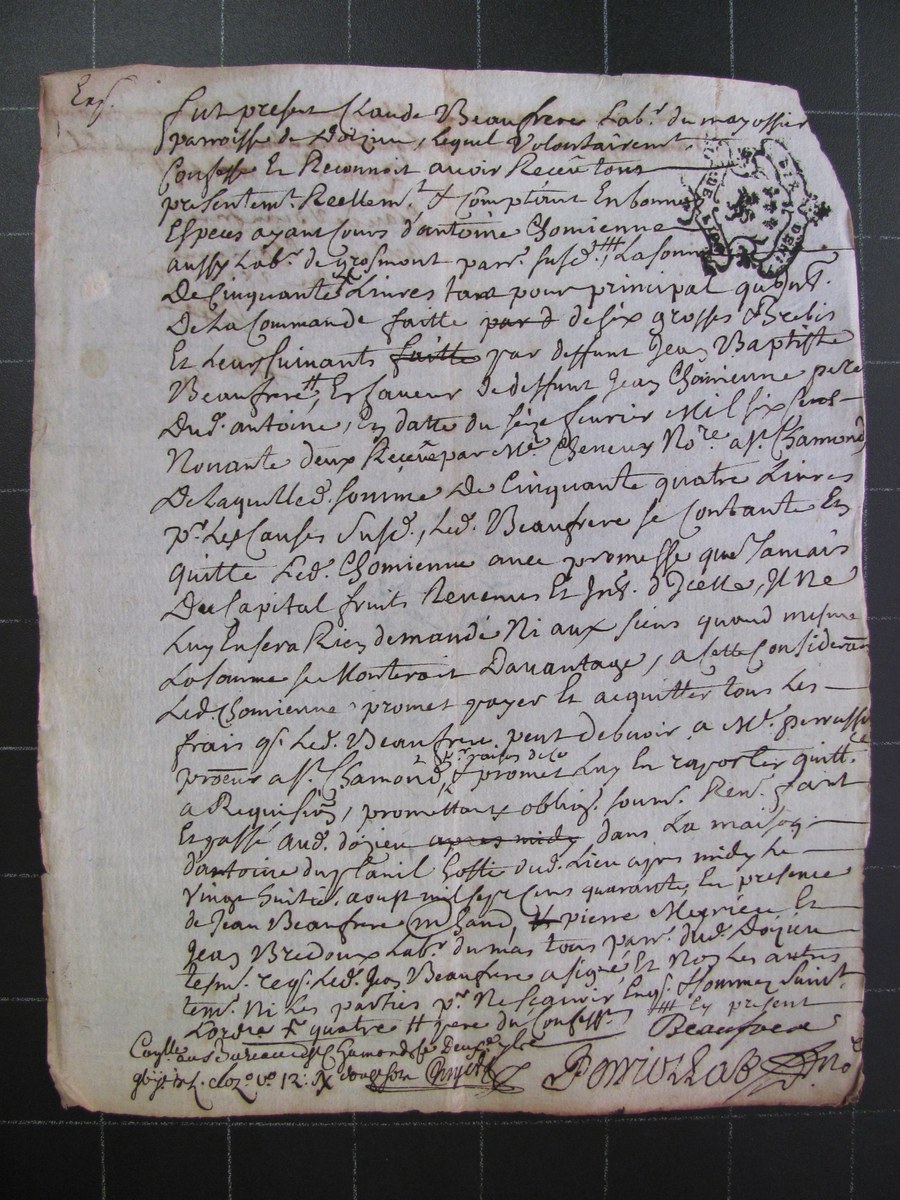 Exp.
fut present Claude Beaufrere Labr. du mayossier
parroisse de Doizieu, lequel Volontairemt.
Confesse Et Reconnoit avoir Receu tout
presentemt. Reellemt. & Comptent En bonnes
Especes ayant Cours d'antoine Chomienne
aussy Labr. de grosmont parr. susd. # La somme
De Cinquante Livres tant pour principal qu'Int.
De La Commande faitte par d de six grosses & brebis
Et Leurs suivants faitte par deffunt Jean Baptiste
Beaufrere # En faveur de deffunt Jean Chomienne pere
Dud. antoine, En datte du seize fevrier Mil six Cents
Nonante deux Receue par Me. Cheneux Nore. a St. Chamond,
De Laquelle d. somme De Cinquante quatre Livres
pr. Les Causes Susd., Led. Beaufrere se Contante En
quitte Led. Chomienne avec promesse que Jamais
Du Capital fruits Revenus Et Int. d'Icelle, Il Ne
Luy En sera Rien demandé Ni aux siens quand mesme
La somme se Monteroit Davantage, a Cette Consideraon
Led. Chomienne promet payer Et acquitter tous Les
frais q. Led. Beaufrere peut debvoir a Me. perrussel
pr. raison de Ce
procur a St. Chamond, & promet Luy En raporter quitt.
a Requision, promettant obblig. soum. Ren. fait
Et passé aud. doizieu apres midy dans La maison
d'antoine duplanil hoste dud. Lieu apres midy Le
Vingt huitie. aoust mil sept Cens quarante, En presence
de Jean Beaufrere Mchand, Et pierre Meyrieu Et
Jean Bredoux Labr. du mas tous parr. dud. Doizieu
tesm. req. Led. Jean Beaufrere a signé Et Non Les autres
tem. Ni Les parties pr. Ne sçavoir Enq. & sommez suivt.
L'ordre # quatre # pere du Confesst. ## En present
Beaufrere
au Bureau de St. Chamond Le
Nore